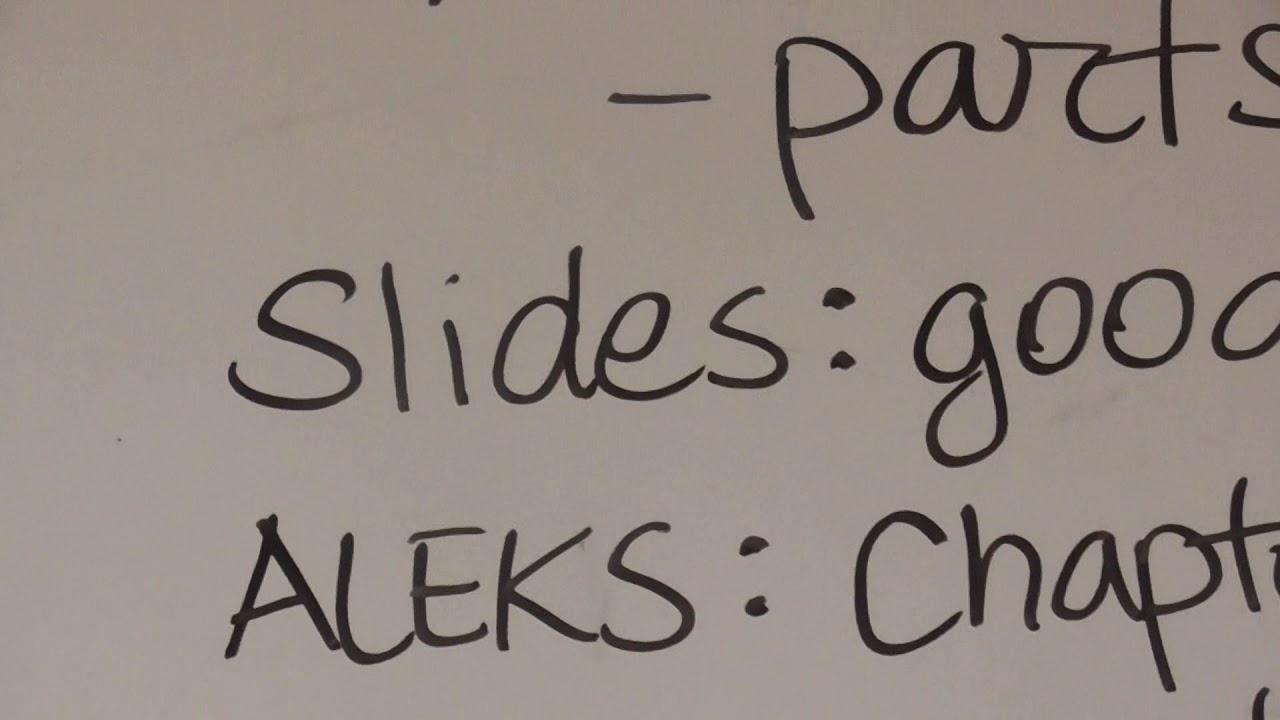 - parts
Slides: good
ALEKS: Chapt